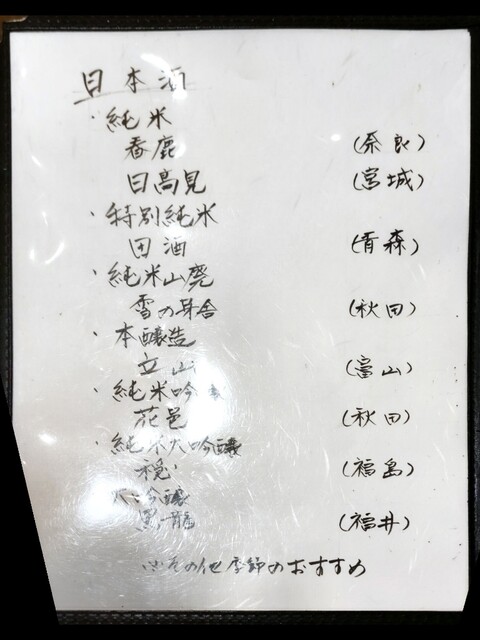 日本酒
・純米
春鹿 (奈良)
日高見 (宮城)
・特別純米
田酒 (青森)
・純米山廃
雪の茅舎 (秋田)
・本醸造
立山 (富山)
・純米吟
花邑 (秋田)
・純米大吟醸
(福島)
大吟醸
黒龍 (福井)
その他季節のおすすめ